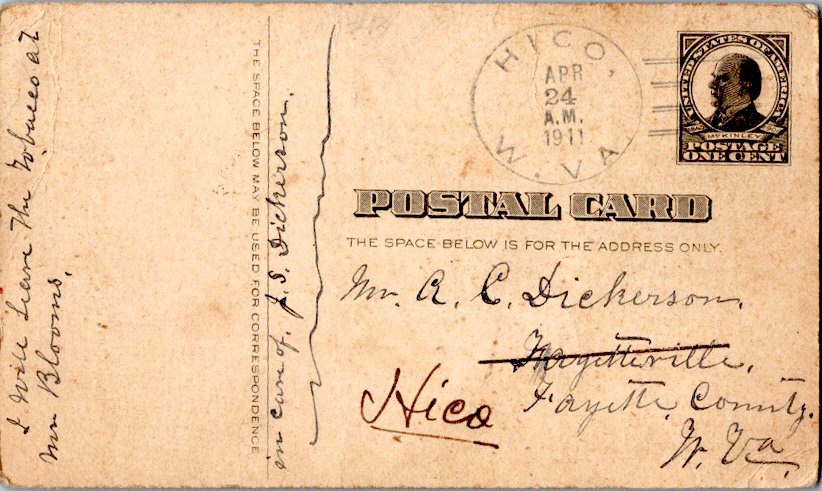 I Will Leave The Tobacco at
Mrs Blooms.
THE SPACE BELOW MAY BE USED FOR CORRESPONDENCE
in care of. J. S. Dickerson.
HICO,
APR
24
A.M.
1911
W. VA.
UNITED STATES OF AMERICA
McKINLEY
POSTAGE
ONE CENT
POSTAL CARD
THE SPACE BELOW IS FOR THE ADDRESS ONLY.
Mr. A. C. Dickerson.
Fayetteville.
Hico
Fayette County.
W. Va.